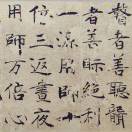 瞽者善聽聾
者善眎絕利
一源用師十
倍三返晝夜
用師万倍心